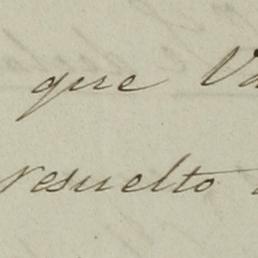 que
resuelto